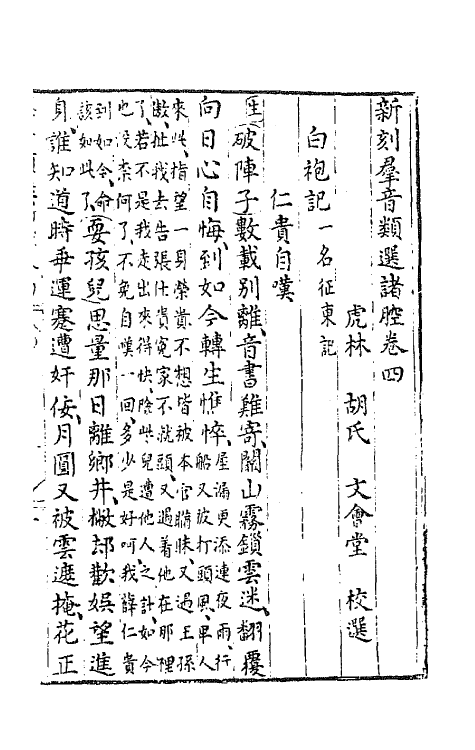 新刻羣音類選諸腔卷四
虎林 胡氏 文會堂 校選
白袍記一名征東記
仁貴自嘆
破陣子數載別離音書難寄關山霧鎖雲迷翻覆
向日心自悔到如今轉生憔悴屋漏更添連夜雨行
船又被打頭風卑人
來此指望一身榮貴不想皆被本官瞞昧又遇王孫
數扯我去告張仕貴冤家不就頭又遇着他在那裡
了若不是我走出來得快險些兒遭他人之計如今
也沒奈何了不免自嘆一回多少是好呵我薛仁貴
到如今命
該如此了耍孩兒思量那日離鄉井撇卻歡娛望進
身誰知道時乖運蹇遭奸佞月圓又被雲遮掩花正